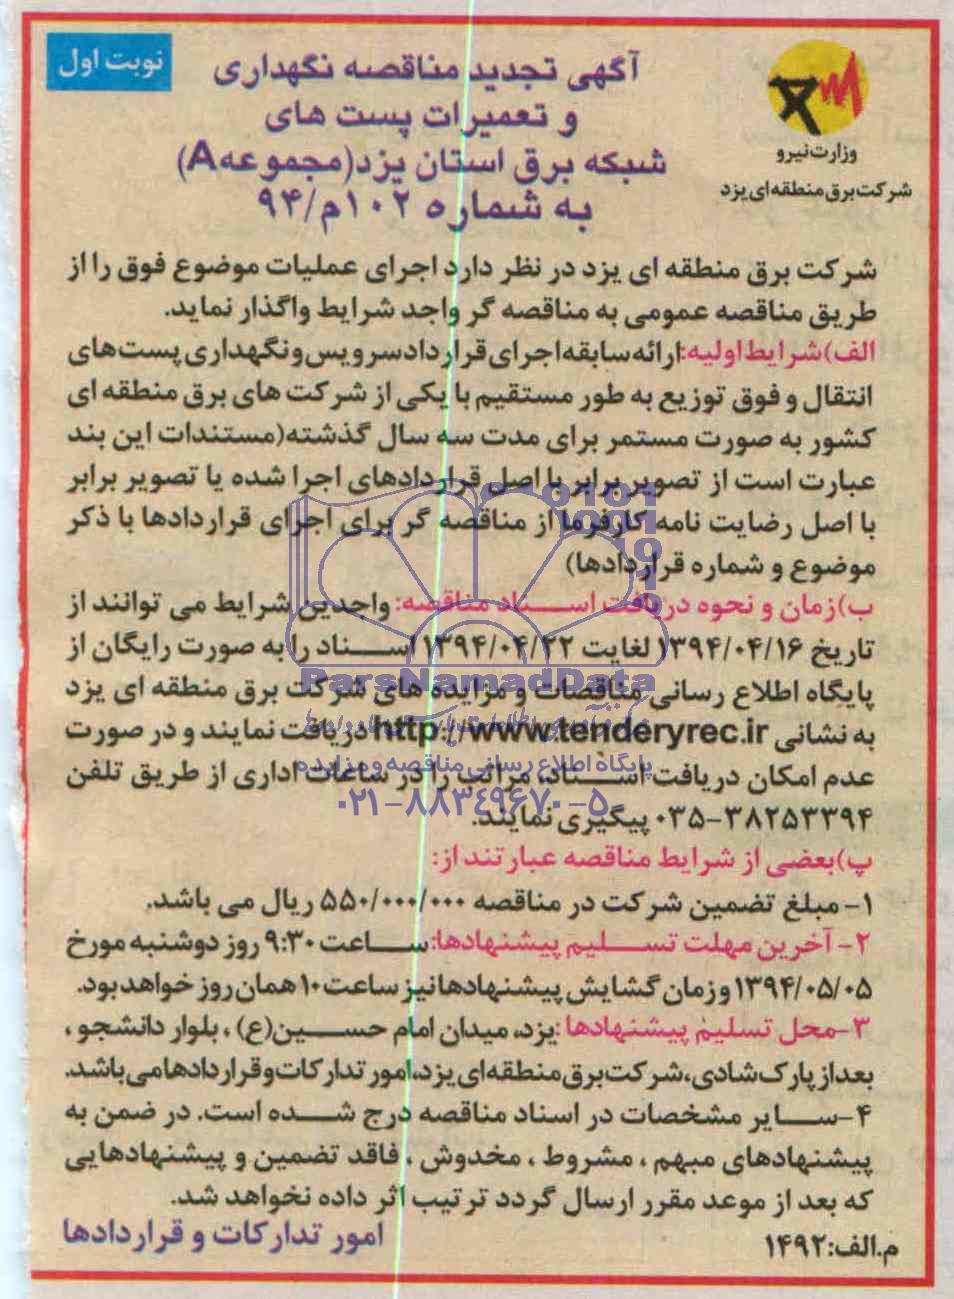 نوبت اول
آگهی تجدید مناقصه نگهداری
و تعمیرات پست های
شبکه برق استان یزد(مجموعهA)
به شماره ۱۰۲م/۹۴
وزارت نیرو
شرکت برق منطقه ای یزد
شرکت برق منطقه ای یزد در نظر دارد اجرای عملیات موضوع فوق را از
طریق مناقصه عمومی به مناقصه گر واجد شرایط واگذار نماید.
الف)شرایط اولیه:ارائه سابقه اجرای قرارداد سرویس و نگهداری پست های
انتقال و فوق توزیع به طور مستقیم با یکی از شرکت های برق منطقه ای
کشور به صورت مستمر برای مدت سه سال گذشته(مستندات این بند
عبارت است از تصویر برابر با اصل قراردادهای اجرا شده یا تصویر برابر
با اصل رضایت نامه کارفرما از مناقصه گر برای اجرای قراردادها با ذکر
موضوع و شماره قراردادها)
ب)زمان و نحوه دریافت اسناد مناقصه: واجدین شرایط می توانند از
تاریخ ۱۳۹۴/۰۴/۱۶ لغایت ۱۳۹۴/۰۴/۲۲ اسناد را به صورت رایگان از
ParsNamadData
پایگاه اطلاع رسانی مناقصات و مزایده های شرکت برق منطقه ای یزد
به نشانی http://www.tenderyrec.ir دریافت نمایند و در صورت
پایگاه اطلاع رسانی مناقصه و مزایده
عدم امکان دریافت اسناد، مراتب را در ساعات اداری از طریق تلفن
۰۲۱-۸۸۳۴۹۶۷۰-۵
۰۳۵-۳۸۲۵۳۳۹۴ پیگیری نمایند.
پ)بعضی از شرایط مناقصه عبارتند از:
۱- مبلغ تضمین شرکت در مناقصه ۵۵۰/۰۰۰/۰۰۰ ریال می باشد.
۲- آخرین مهلت تسلیم پیشنهادها: ساعت ۹:۳۰ روز دوشنبه مورخ
۱۳۹۴/۰۵/۰۵ و زمان گشایش پیشنهادها نیز ساعت ۱۰ همان روز خواهد بود.
۳-محل تسلیم پیشنهادها :یزد، میدان امام حسین(ع) ، بلوار دانشجو ،
بعد از پارک شادی، شرکت برق منطقه ای یزد، امور تدارکات و قراردادها می باشد.
۴-سایر مشخصات در اسناد مناقصه درج شده است. در ضمن به
پیشنهادهای مبهم ، مشروط ، مخدوش ، فاقد تضمین و پیشنهادهایی
که بعد از موعد مقرر ارسال گردد ترتیب اثر داده نخواهد شد.
امور تدارکات و قراردادها
م.الف:۱۴۹۲